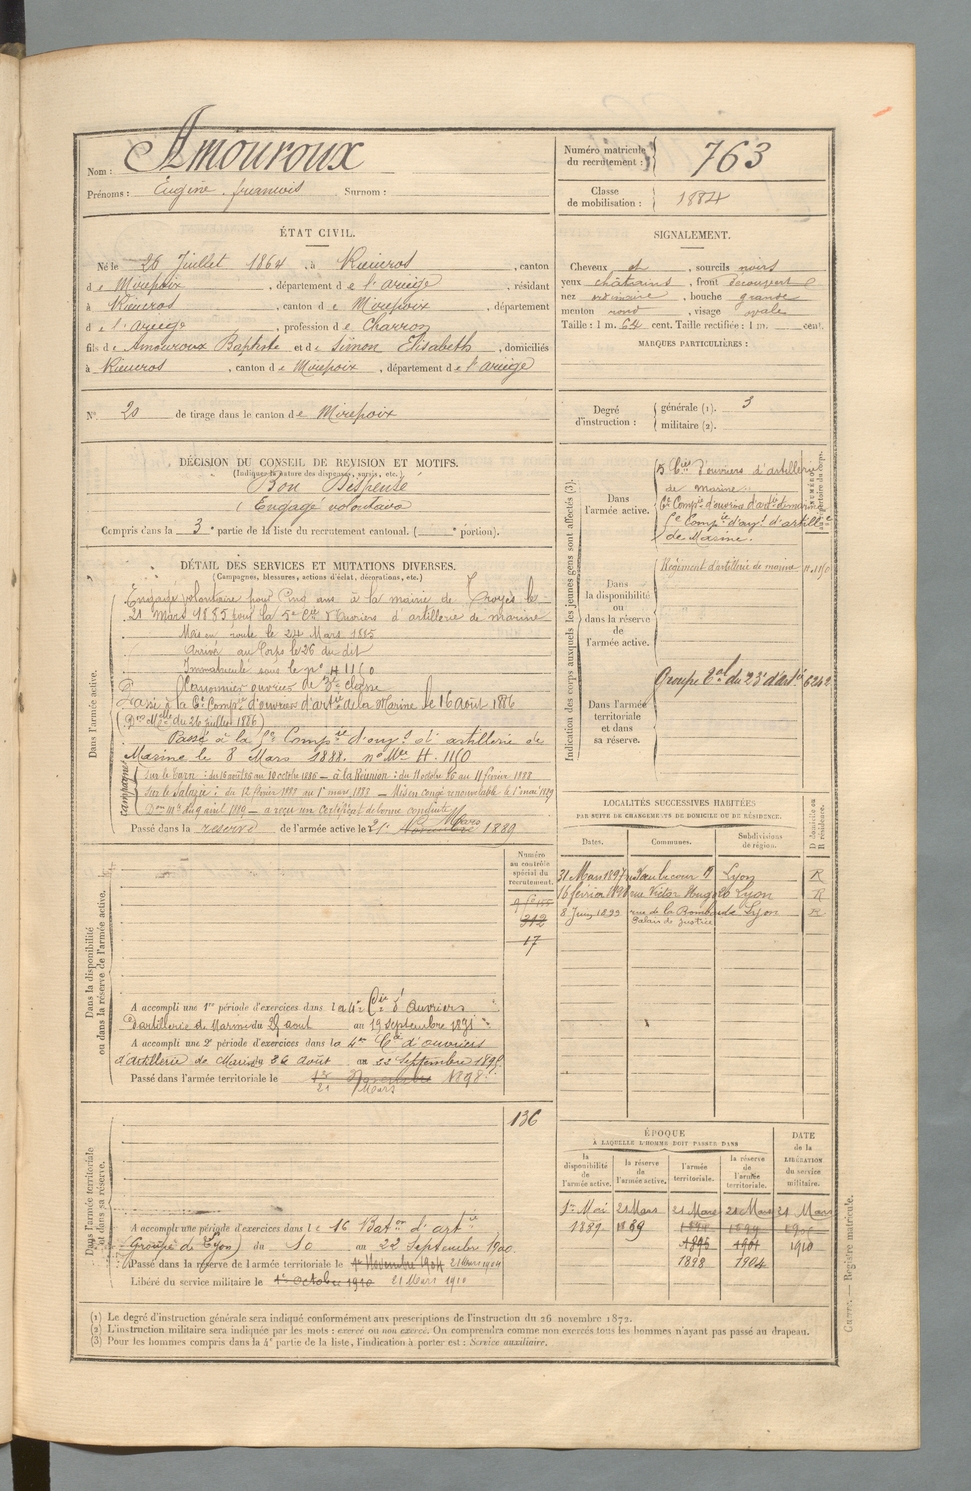 Nom : Amouroux
Prénoms : Eugène François Surnom :
Numéro matricule du recrutement : 763
Classe de mobilisation : 1884
ÉTAT CIVIL.
Né le 26 Juillet 1864, à Rieucros, canton
de Mirepoix, département de l'ariège, résidant
à Rieucros, canton de Mirepoix, département
de l'ariège, profession de Charron
fils de Amouroux Baptiste et de Simon Elisabeth, domiciliés
à Rieucros, canton de Mirepoix, département de l'ariège
N° 20 de tirage dans le canton de Mirepoix
SIGNALEMENT.
Cheveux et, sourcils noirs
yeux châtains, front découvert
nez ordinaire, bouche grande
menton rond, visage ovale
Taille : 1 m. 64 cent. Taille rectifiée : 1 m. cent.
MARQUES PARTICULIÈRES :
Degré d'instruction : générale (1). 3
militaire (2).
DÉCISION DU CONSEIL DE REVISION ET MOTIFS.
(Indiquer la nature des dispenses, sursis, etc.)
Bon Dispensé
Engagé volontaire
Compris dans la 3e partie de la liste du recrutement cantonal. ( e portion).
DÉTAIL DES SERVICES ET MUTATIONS DIVERSES.
(Campagnes, blessures, actions d'éclat, décorations, etc.)
Dans l'armée active.
Engagé volontaire pour Cinq ans à la mairie de Troyes le
21 Mars 1885 pour la 5e Cie d'Ouvriers d'artillerie de marine
Mis en route le 24 Mars 1885
Arrivé au Corps le 26 du dit
Immatriculé sous le n° H 1150
Canonnier ouvrier de 3e classe
Passé à la 6e Compie d'ouvriers d'artie de la Marine le 16 août 1886
(Don Mlle du 26 juillet 1886)
Passé à la Compie d'ouvrs d'artillerie de
Marine le 8 Mars 1888. n° Mle H. 1150
Campagnes
Sur le Tarn : du 16 août 86 au 10 octobre 1886 — à la Réunion : du 11 octobre 86 au 11 février 1888
Sur le Salazie : du 12 février 1888 au 1er mars 1888 — Mis en congé renouvelable le 1er mai 1889
Don mlle du 9 avril 1889 — a reçu un Certificat de bonne conduite
Passé dans la réserve de l'armée active le 21 Novembre Mars 1889
Indication des corps auxquels les jeunes gens sont affectés (3).
NUMÉRO au répertoire du corps.
Dans l'armée active.
5e Cie d'ouvriers d'artillerie
de marine
6e Compie d'ouvriers d'artie de marine
Compie d'ouvrs d'artillie
de Marine.
Dans la disponibilité ou dans la réserve de l'armée active.
Régiment d'artillerie de marine H. 1150
Dans l'armée territoriale et dans sa réserve.
Groupe Tal du 23e d'artie 6242
LOCALITÉS SUCCESSIVES HABITÉES
PAR SUITE DE CHANGEMENTS DE DOMICILE OU DE RÉSIDENCE.
Dates. Communes. Subdivisions de région. D domicile ou R résidence.
31 Mars 1897 Lyon R
16 février 1898 rue Victor Hugo 26 Lyon R
8 Juin 1899 rue de la Bombarde Lyon R
Palais de Justice
Numéro au contrôle spécial du recrutement.
312
17
Dans la disponibilité ou dans la réserve de l'armée active.
A accompli une 1re période d'exercices dans la 4e Cie d'Ouvriers
d'artillerie de Marine du 23 août au 19 septembre 1891
A accompli une 2e période d'exercices dans la 4e Cie d'ouvriers
d'artillerie de Marine du 26 août au 22 Septembre 1895
Passé dans l'armée territoriale le 1er Novembre 1898
21 Mars
136
Dans l'armée territoriale et dans sa réserve.
A accompli une période d'exercices dans le 16 Baton d'artie
(Groupe de Lyon) du 10 au 22 Septembre 1900
Passé dans la réserve de l'armée territoriale le 1er Novembre 1904 21 Mars 1904
Libéré du service militaire le 1er Octobre 1910 21 Mars 1910
ÉPOQUE
À LAQUELLE L'HOMME DOIT PASSER DANS
la disponibilité de l'armée active. la réserve de l'armée active. l'armée territoriale. la réserve de l'armée territoriale. DATE de la LIBÉRATION du service militaire.
1er Mai 21 Mars 21 Mars 21 Mars 21 Mars
1889 1889 1894 1899
1895 1901 1910
1898 1904
(1) Le degré d'instruction générale sera indiqué conformément aux prescriptions de l'instruction du 26 novembre 1872.
(2) L'instruction militaire sera indiquée par les mots : exercé ou non exercé. On comprendra comme non exercés tous les hommes n'ayant pas passé au drapeau.
(3) Pour les hommes compris dans la 4e partie de la liste, l'indication à porter est : Service auxiliaire.
Guerre. — Registre matricule.